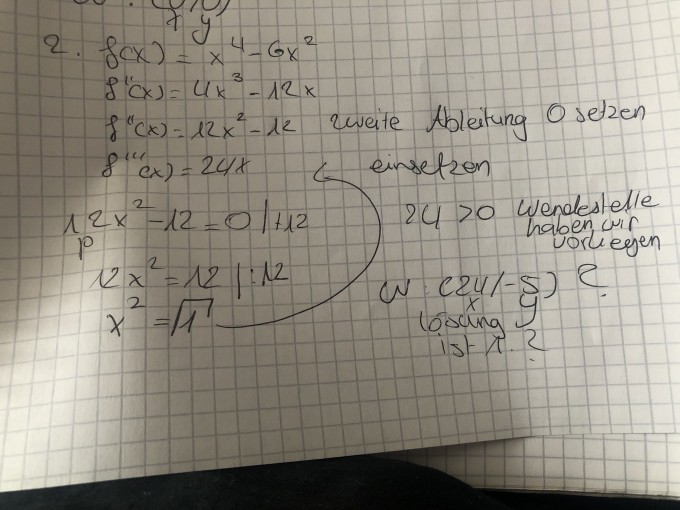 x y
2. f(x) = x⁴ - 6x²
f''(x) = 4x³ - 12x
f''(x) = 12x² - 12 zweite Ableitung 0 setzen
f'''(x) = 24x einsetzen
12x² - 12 = 0 | +12
p
24 > 0 Wendestelle
haben wir
vorliegen
12x² = 12 | :12
x² = √1
W: (24/-5) ?
x y
lösung
ist 1.?